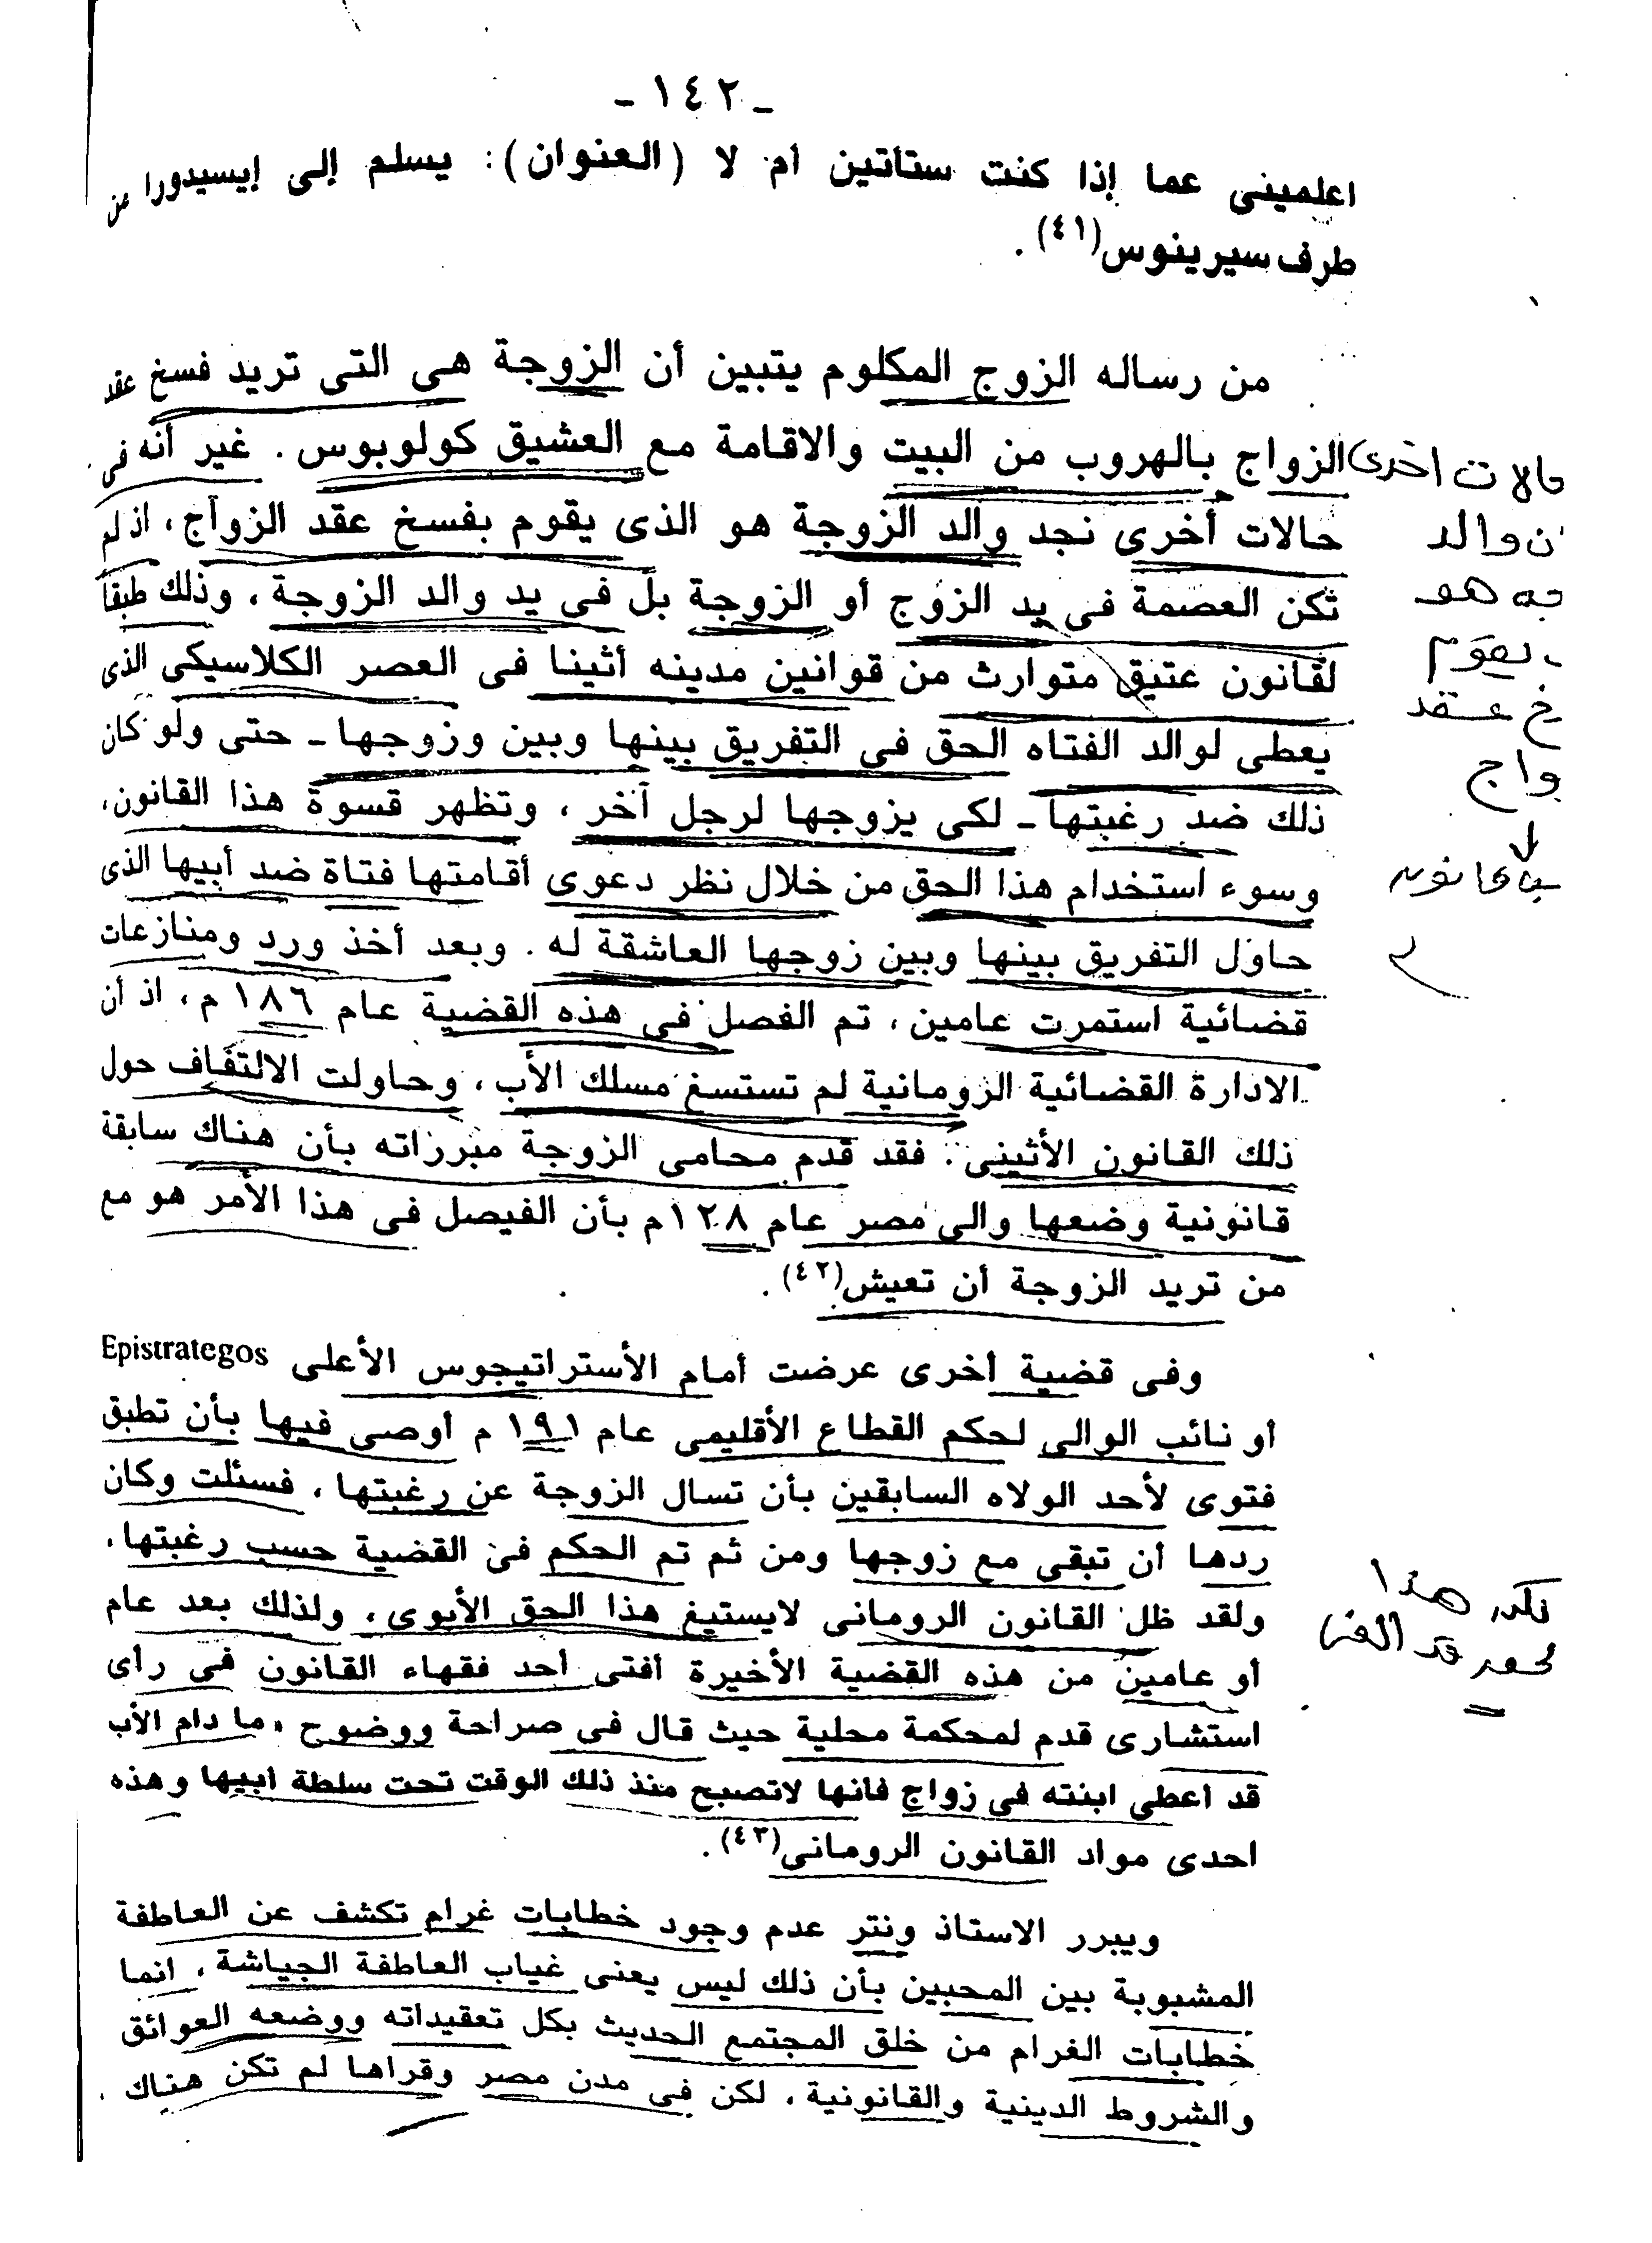 - ١٤٢ -
اعلمينى عما إذا كنت ستأتين أم لا (العنوان): يسلم إلى إيسيدورا من
طرف سيرينوس(٤١) .
من رساله الزوج المكلوم يتبين أن الزوجة هى التى تريد فسخ عقد
الزواج بالهروب من البيت والاقامة مع العشيق كولوبوس . غير أنه فى
حالات أخرى نجد والد الزوجة هو الذى يقوم بفسخ عقد الزواج ، اذ لم
تكن العصمة فى يد الزوج أو الزوجة بل فى يد والد الزوجة ، وذلك طبقا
لقانون عتيق متوارث من قوانين مدينه أثينا فى العصر الكلاسيكى الذى
يعطى لوالد الفتاه الحق فى التفريق بينها وبين وزوجها - حتى ولو كان
ذلك ضد رغبتها - لكى يزوجها لرجل آخر ، وتظهر قسوة هذا القانون،
وسوء استخدام هذا الحق من خلال نظر دعوى أقامتها فتاة ضد أبيها الذى
حاول التفريق بينها وبين زوجها العاشقة له . وبعد أخذ ورد ومنازعات
قضائية استمرت عامين ، تم الفصل فى هذه القضية عام ١٨٦ م ، اذ أن
الادارة القضائية الرومانية لم تستسغ مسلك الأب ، وحاولت الالتفاف حول
ذلك القانون الأثينى . فقد قدم محامى الزوجة مبرراته بأن هناك سابقة
قانونية وضعها والى مصر عام ١٢٨م بأن الفيصل فى هذا الأمر هو مع
من تريد الزوجة أن تعيش(٤٢) .
وفى قضية أخرى عرضت أمام الأستراتيجوس الأعلى Epistrategos
أو نائب الوالى لحكم القطاع الأقليمى عام ١٩١ م أوصى فيها بأن تطبق
فتوى لأحد الولاه السابقين بأن تسال الزوجة عن رغبتها ، فسئلت وكان
ردها أن تبقى مع زوجها ومن ثم تم الحكم فى القضية حسب رغبتها .
ولقد ظل القانون الرومانى لايستيغ هذا الحق الأبوى ، ولذلك بعد عام
أو عامين من هذه القضية الأخيرة أفتى أحد فقهاء القانون فى رأى
استشارى قدم لمحكمة محلية حيث قال فى صراحة ووضوح " ما دام الأب
قد اعطى ابنته فى زواج فأنها لاتصبح منذ ذلك الوقت تحت سلطة أبيها وهذه
احدى مواد القانون الرومانى(٤٣) .
ويبرر الاستاذ ونتر عدم وجود خطابات غرام تكشف عن العاطفة
المشبوبة بين المحبين بأن ذلك ليس يعنى غياب العاطفة الجياشة ، انما
خطابات الغرام من خلق المجتمع الحديث بكل تعقيداته ووضعه العوائق
والشروط الدينية والقانونية ، لكن فى مدن مصر وقراها لم تكن هناك
حالات اخرى
ن والد
جه هو
يقوم
خ عقد
واج
هذا